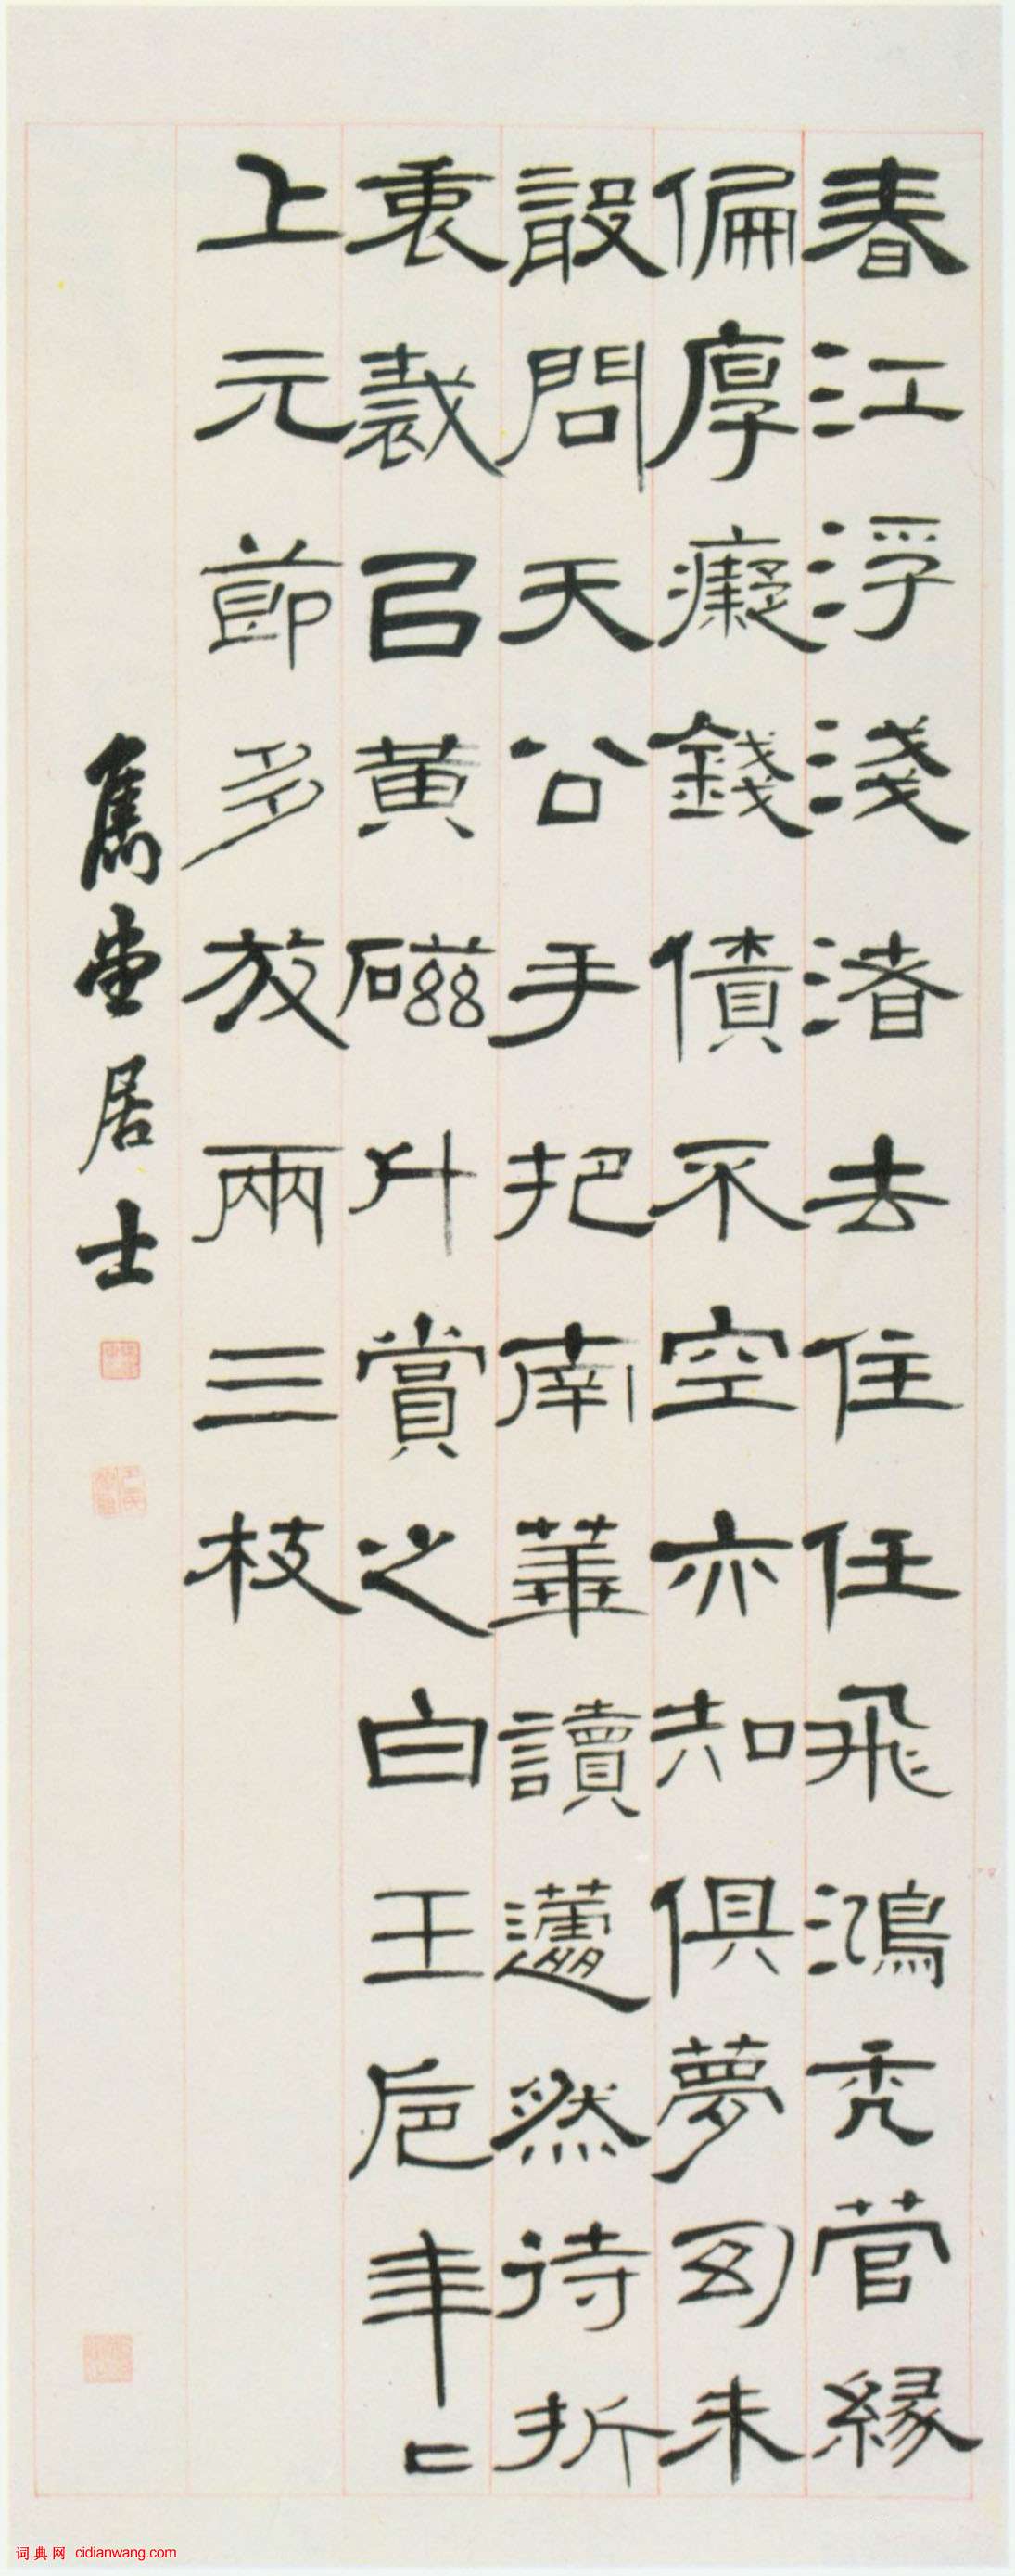 春江浮淺渚去住任飛鴻禿菅緣
偏厚癡錢債不空亦知俱夢幻未
設問天公手把南華讀蘧然待折
衷裁㠯黃磁斗賞之白玉卮年二
上元節多放兩三枝
雋堂居士
词典网 cidianwang.com